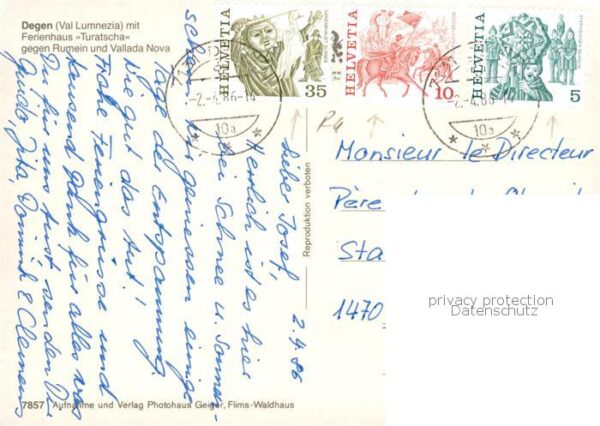 Degen (Val Lumnezia) mit
Ferienhaus »Turatscha«
gegen Rumein und Vallada Nova
HELVETIA
35
HELVETIA
10
HELVETIA
5
-2.-4.86-14
10a
-2.-4.86-
10a
2.4.86
Lieber Josef,
Herrlich ist es hier
bei Schnee u. Sonnen-
schein. Wir geniessen einige
Tage der Entspannung.
Wie gut das tut!
Frohe Feriengrüsse und
tausend Dank für alles was
Du für uns tust senden Dir
Guido, Zita, Dominik & Clemens
Reproduktion verboten
Monsieur le Directeur
Père
Sta
1470
privacy protection
Datenschutz
7857 Aufnahme und Verlag Photohaus Geiger, Flims-Waldhaus